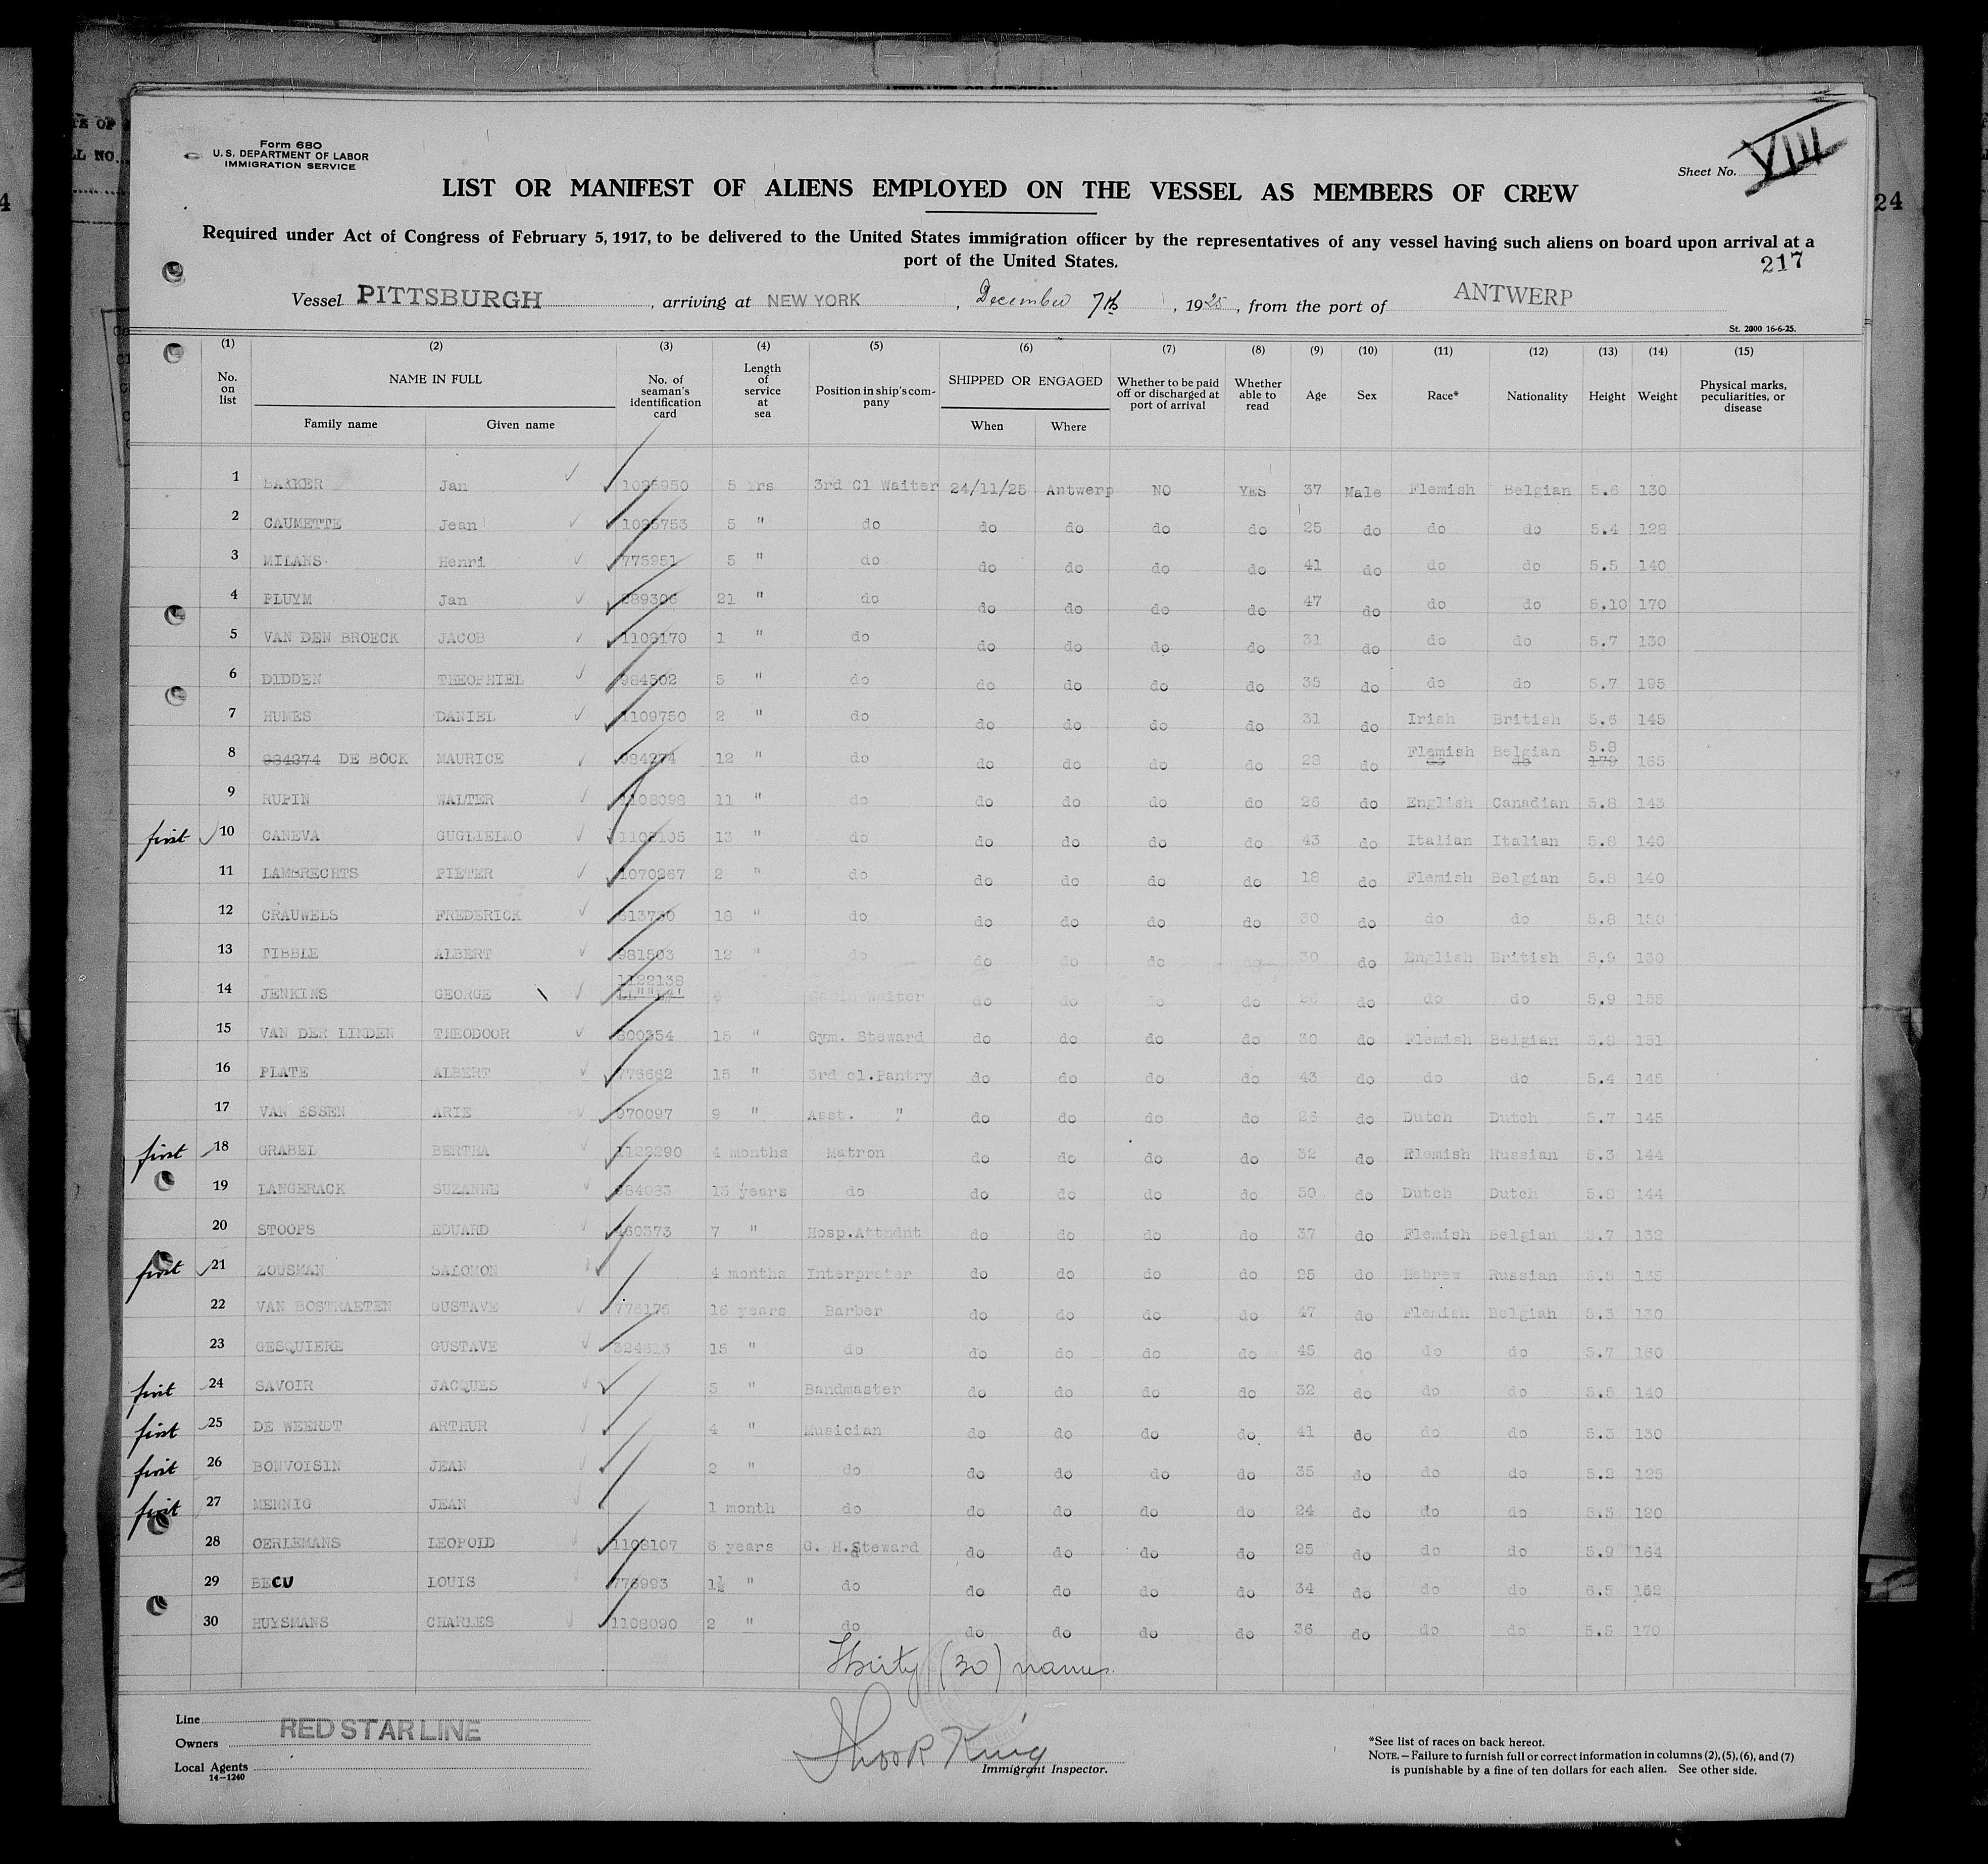 Form 680
U. S. DEPARTMENT OF LABOR
IMMIGRATION SERVICE
Sheet No. VIII
LIST OR MANIFEST OF ALIENS EMPLOYED ON THE VESSEL AS MEMBERS OF CREW
Required under Act of Congress of February 5, 1917, to be delivered to the United States immigration officer by the representatives of any vessel having such aliens on board upon arrival at a
port of the United States.
217
24
Vessel PITTSBURGH, arriving at NEW YORK, December 7th, 1925, from the port of ANTWERP
St. 2000 16-6-25.
(1) (2) (3) (4) (5) (6) (7) (8) (9) (10) (11) (12) (13) (14) (15)
No. on list NAME IN FULL Family name Given name No. of seaman's identification card Length of service at sea Position in ship's company SHIPPED OR ENGAGED When Where Whether to be paid off or discharged at port of arrival Whether able to read Age Sex Race* Nationality Height Weight Physical marks, peculiarities, or disease
1 BARKER Jan 5 Yrs 3rd Cl Waiter 24/11/25 Antwerp NO YES 37 Male Flemish Belgian 5.6 130
2 CAUMETTE Jean 5 " do do do do do 25 do do do 5.4 128
3 MILANS Henri 775951 5 " do do do do do 41 do do do 5.5 140
4 PLUYM Jan 21 " do do do do do 47 do do do 5.10 170
5 VAN DEN BROECK JACOB 1109170 1 " do do do do do 31 do do do 5.7 130
6 DIDDEN THEOPHIEL 984502 5 " do do do do do 35 do do do 5.7 195
7 HUMES DANIEL 1109750 2 " do do do do do 31 do Irish British 5.6 145
8 984274 DE BOCK MAURICE 984274 12 " do do do do do 28 do Flemish do Belgian do 5.8 179 165
9 RUPIN WALTER 1108098 11 " do do do do do 26 do English Canadian 5.8 143
first 10 CANEVA GUGLIELMO 13 " do do do do do 43 do Italian Italian 5.8 140
11 LAMBRECHTS PIETER 1070267 2 " do do do do do 18 do Flemish Belgian 5.8 140
12 CRAUWELS FREDERICK 18 " do do do do do 30 do do do 5.8
13 TIBBLE ALBERT 981503 12 " do do do do do 30 do English British 5.9 130
14 JENKINS GEORGE 1122138 Waiter do do do do do do do 5.9 155
15 VAN DER LINDEN THEODOOR 15 " Gym. Steward do do do do 30 do Flemish Belgian 5.8 151
16 PLATE ALBERT 15 " 3rd cl.Pantry do do do do 43 do do do 5.4 145
17 VAN ESSEN ARIE 970097 9 " Asst. " do do do do 26 do Dutch Dutch 5.7 145
first 18 GRABEL BERTHA 1122290 4 months Matron do do do do 32 do Flemish Russian 5.3 144
19 LANGERACK SUZANNE 13 years do do do do do 50 do Dutch Dutch 5.8 144
20 STOOPS EDUARD 460373 7 " Hosp.Attndnt do do do do 37 do Flemish Belgian 5.7 132
first 21 ZOUSMAN SALOMON 4 months Interpreter do do do do 25 do Hebrew Russian 5.8 135
22 VAN BOSTRAETEN GUSTAVE 16 years Barber do do do do 47 do Flemish Belgian 5.3 130
23 GESQUIERE GUSTAVE 15 " do do do do do 45 do do do 5.7 160
first 24 SAVOIR JACQUES 5 " Bandmaster do do do do 32 do do do 5.5 140
first 25 DE WEERDT ARTHUR 4 " Musician do do do do 41 do do do 5.3 130
first 26 BONVOISIN JEAN 2 " do do do do do 35 do do do 5.2 125
first 27 MENNIG JEAN 1 month do do do do do 24 do do do 5.5 120
28 OERLEMANS LEOPOLD 1108107 6 years G. H.Steward do do do do 25 do do do 5.9 164
29 BECU LOUIS 1½ " do do do do do 34 do do do 6.5 152
30 HUYSMANS CHARLES 1108090 2 " do do do do do 36 do do do 5.5 170
Thirty (30) names.
Line RED STAR LINE
Owners
Local Agents
14-1240
King
Immigrant Inspector.
*See list of races on back hereof.
NOTE.—Failure to furnish full or correct information in columns (2), (5), (6), and (7)
is punishable by a fine of ten dollars for each alien. See other side.